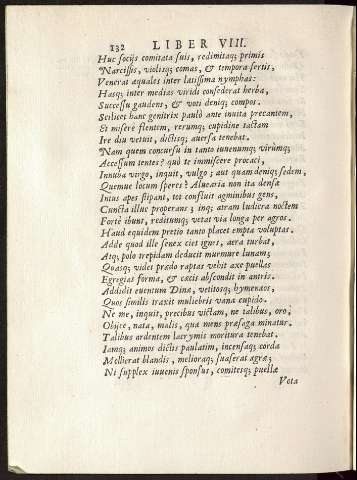 132 LIBER VIII.
Huc socijs comitata suis, redimitaq; primis
Narcissis, violisq; comas, & tempora sertis,
Venerat aquales inter latissima nymphas:
Hasq; inter medias viridi consederat herba,
Successu gaudens, & voti deniq; compos.
Scilicet hanc genitrix paulò ante inuita precantem,
Et miserè flentem, rerumq; cupidine tactam
Ire diu vetuit, dictisq; auersa tenebat.
Nam quem concursu in tanto iuuenumq; virûmq;
Accessum tentes? quò te immiscere procaci,
Innuba virgo, inquit, vulgo; aut quam deniq; sedem,
Quemue locum speres? Aluearia non ita densa
Intus apes stipant, tot confluit agminibus gens,
Cuncta illuc properans; inq; atram ludicra noctem
Fortè ibunt, reditumq; vetat via longa per agros.
Haud equidem pretio tanto placet empta voluptas.
Adde quod ille senex ciet ignes, aera turbat,
Atq; polo trepidam deducit murmure lunam;
Quasq; videt prædo raptas vehit axe puellas
Egregias forma, & cæcis abscondit in antris.
Addidit euentum Dinæ, vetitosq; hymenæos,
Quos similis traxit muliebris vana cupido.
Ne me, inquit, precibus victam, ne talibus, oro,
Obijce, nata, malis, qua mens præsaga minatur.
Talibus ardentem lacrymis moritura tenebat.
Iamq; animos dictis paulatim, incensaq; corda
Mollierat blandis, melioraq; suaserat ægræ;
Ni supplex iuuenis sponsus, comitesq; puellæ
Vota